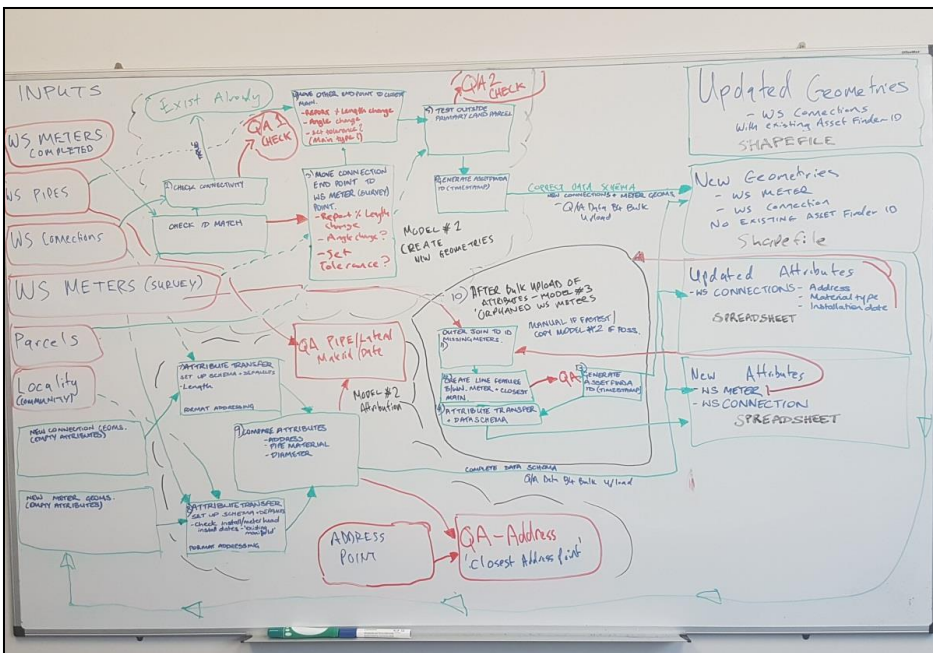 INPUTS
WS METERS
COMPLETED
WS PIPES
WS Connections
WS METERS (SURVEY)
Parcels
Locality
(COMMUNITY)
NEW CONNECTION GEOMS.
(EMPTY ATTRIBUTES)
NEW METER GEOMS.
(EMPTY ATTRIBUTES)
Exist Already
CHECK CONNECTIVITY
CHECK ID MATCH
QA 1
CHECK
MOVE OTHER ENDPOINT TO CLOSEST
MAIN.
- Report % Length change
- Angle change
- Set tolerance?
(Main type?)
3) MOVE CONNECTION
END POINT TO
WS METER (SURVEY)
POINT.
- Report % Length
change
- Angle change?
- Set
Tolerance?
MODEL #2
CREATE
NEW GEOMETRIES
QA 2
CHECK
5) TEST OUTSIDE
PRIMARY LAND PARCEL
GENERATE ASSETFINDA
ID (TIMESTAMP)
CORRECT DATA SCHEMA
NEW CONNECTIONS + METER GEOMS.
- Q/A Data B4 Bulk
Upload
7) ATTRIBUTE TRANSFER
SET UP SCHEMA + DEFAULTS
- Length
FORMAT ADDRESSING
8) ATTRIBUTE TRANSFER
SET UP SCHEMA + DEFAULTS
- check install/meter
install dates - 'existing
manifold'
FORMAT ADDRESSING
QA PIPE/Lateral
Material/Date
MODEL #2
Attribution
9) COMPARE ATTRIBUTES
- ADDRESS
- PIPE MATERIAL
- DIAMETER
10) AFTER BULK UPLOAD OF
ATTRIBUTES - MODEL #3
'ORPHANED WS METERS
MANUAL IF FASTEST/
COPY MODEL #2 IF POSS.
OUTER JOIN TO ID
MISSING METERS.
11)
CREATE LINE FEATURE
B/WN. METER + CLOSEST
MAIN
QA
GENERATE
ASSETFINDA
ID (TIMESTAMP)
ATTRIBUTE TRANSFER
+ DATA SCHEMA
COMPLETE DATA SCHEMA
Q/A Data B4 Bulk Upload
ADDRESS
POINT
QA - Address
'Closest Address Point'
Updated Geometries
- WS Connections
With existing Asset Finder ID
SHAPEFILE
New Geometries
- WS METER
- WS Connection
NO EXISTING ASSET Finder ID
Shapefile
Updated Attributes
- WS CONNECTIONS - Address
- Material type
- Installation date
SPREADSHEET
New Attributes
- WS METER
- WS CONNECTION
SPREADSHEET